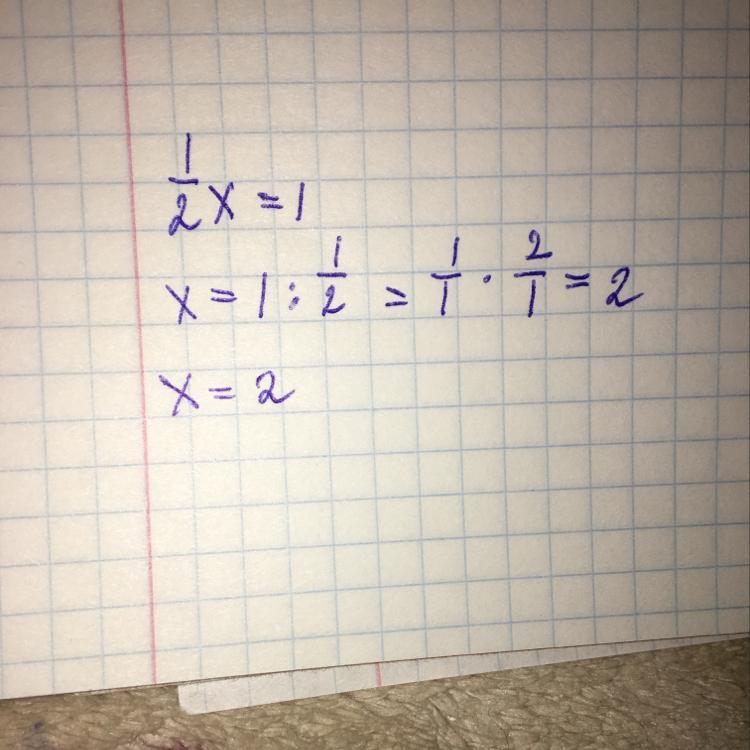 1/2 x = 1
x = 1 : 1/2 = 1/1 · 2/1 = 2
x = 2